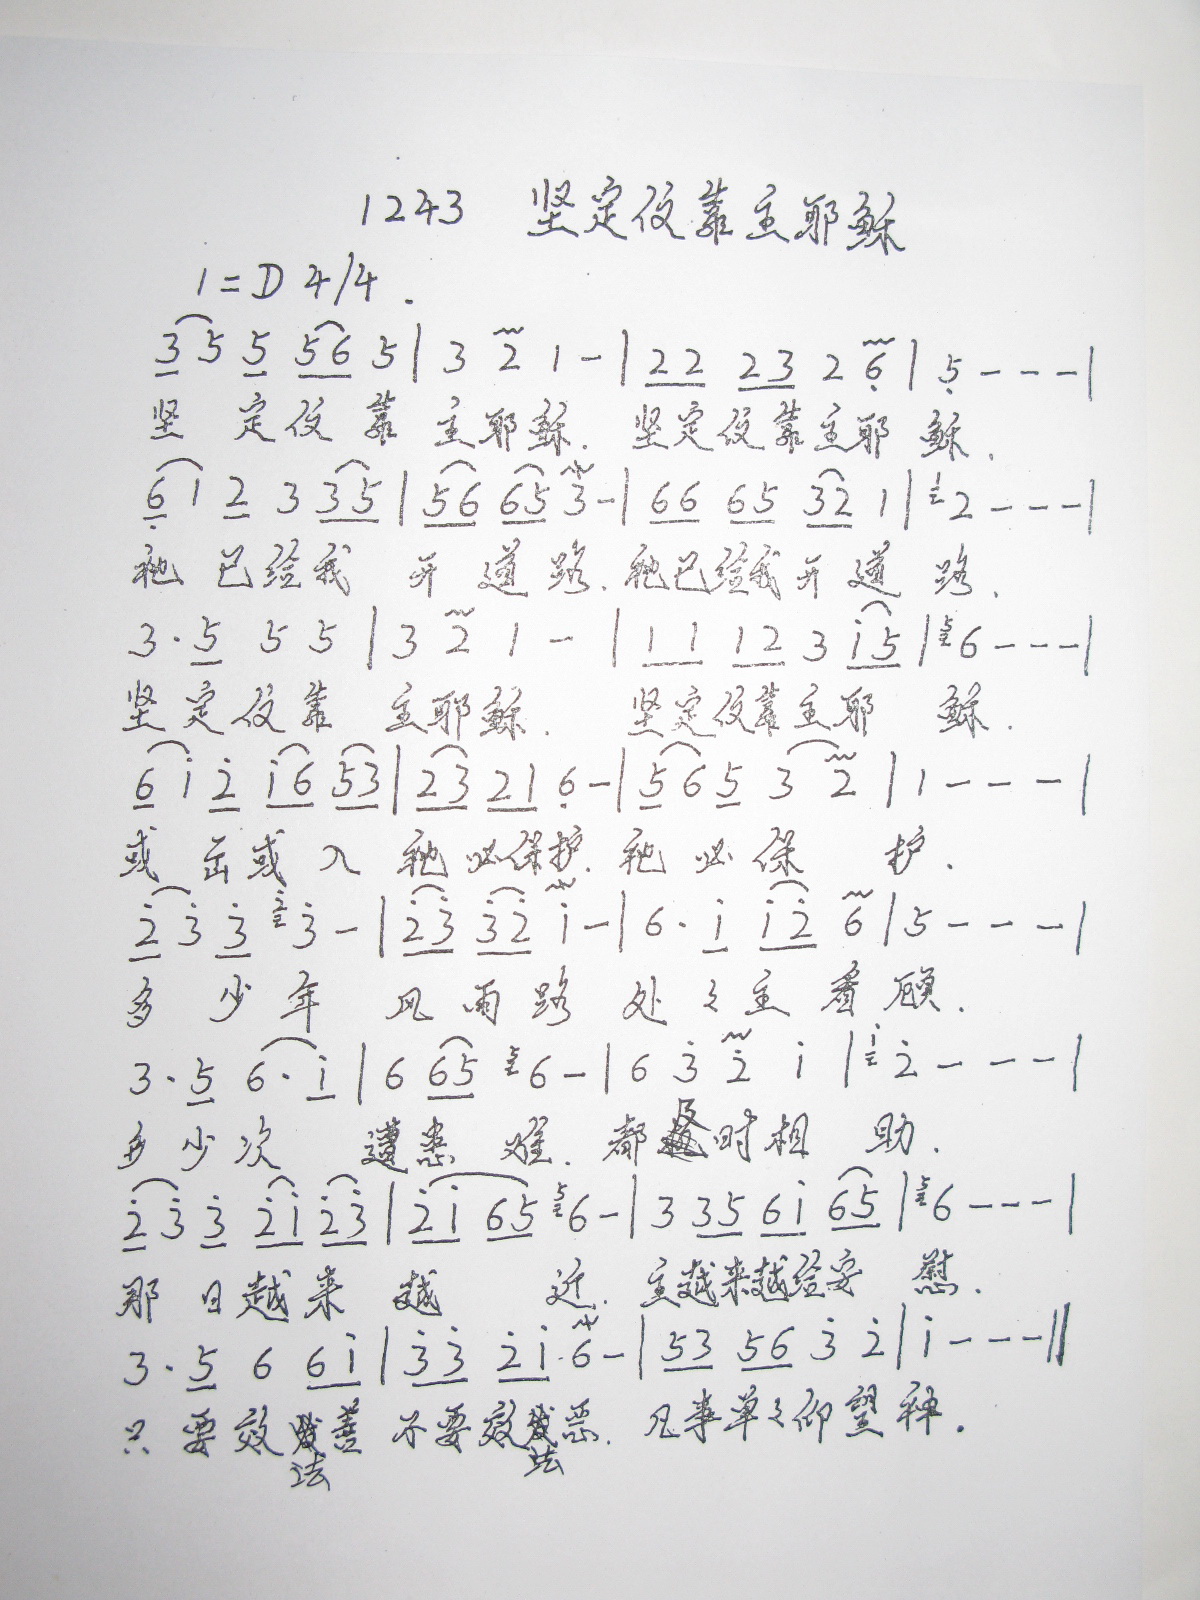 1243 坚定仅靠主耶稣
1=D 4/4.
3 5 5 56 5 | 3 2 1 - | 22 23 2 6̣ | 5̣ - - - |
坚定仅靠主耶稣.坚定仅靠主耶稣.
6̣ 1 2 3 35 | 56 65 3 - | 66 65 32 1 | 1 2 - - - |
祂已给我开道路.祂已给我开道路.
3·5 5 5 | 3 2 1 - | 11 12 3 i5 | 5 6 - - - |
坚定仅靠主耶稣.坚定仅靠主耶稣.
6 i 2̇ i6 53 | 23 21 6̣ - | 5 6 5 3 2 | 1 - - - |
或出或入祂必保护.祂必保护.
2̇ 3̇ 3̇ 2̇ 3̇ - | 2̇3̇ 3̇2̇ i - | 6·i i2̇ 6 | 5 - - - |
多少年风雨路处々主看顾.
3·5 6·i | 6 65 5 6 - | 6 3̇ 2̇ i | i 2̇ - - - |
多少次遭患难.都及时相助.
2̇ 3̇ 3̇ 2̇i 2̇3̇ | 2̇i 65 5 6 - | 3 35 6i 65 | 5 6 - - - |
那日越来越近.主越来越给安慰.
3·5 6 6i | 3̇3̇ 2̇i 6 - | 53 56 3̇ 2̇ | i - - - ‖
只要效法善不要效法恶.凡事单々仰望神.